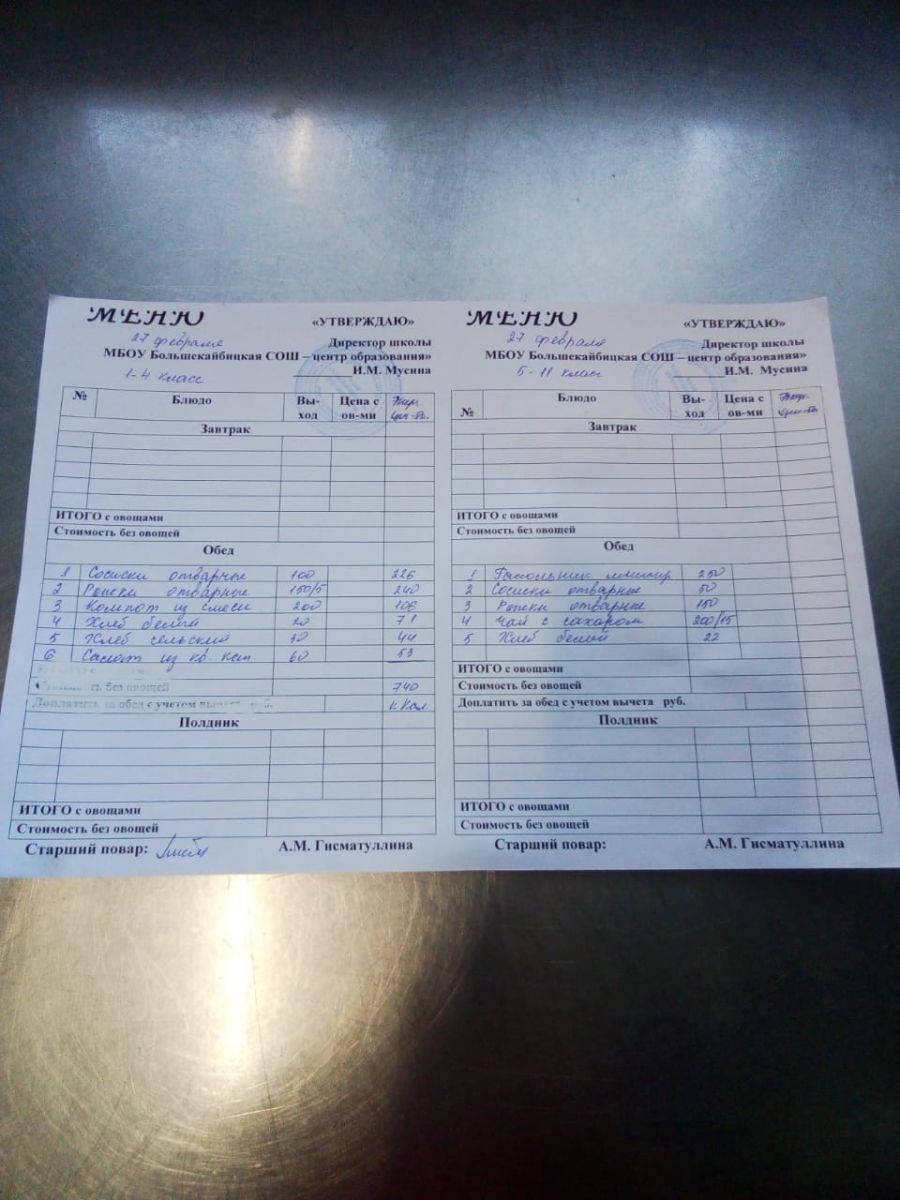 МЕНЮ
«УТВЕРЖДАЮ»
27 февраля
Директор школы
МБОУ Большекайбицкая СОШ – центр образования»
1-4 класс
И.М. Мусина
№ Блюдо Вы-ход Цена с ов-ми
Завтрак
ИТОГО с овощами
Стоимость без овощей
Обед
1 Сосиски отварные 100 226
2 Рожки отварные 150/5 240
3 Компот из смеси 200 106
4 Хлеб белый 20 71
5 Хлеб сельский 30 44
6 Салат из кв. кап. 60 53
Стоимость без овощей 740
Доплатить за обед с учетом вычета руб. кКал
Полдник
ИТОГО с овощами
Стоимость без овощей
Старший повар: А.М. Гисматуллина
МЕНЮ
«УТВЕРЖДАЮ»
27 февраля
Директор школы
МБОУ Большекайбицкая СОШ – центр образования»
5-11 класс
И.М. Мусина
№ Блюдо Вы-ход Цена с ов-ми
Завтрак
ИТОГО с овощами
Стоимость без овощей
Обед
1 Рассольник 250
2 Сосиски отварные 50
3 Рожки отварные 150
4 Чай с сахаром 200/15
5 Хлеб белый 22
ИТОГО с овощами
Стоимость без овощей
Доплатить за обед с учетом вычета руб.
Полдник
ИТОГО с овощами
Стоимость без овощей
Старший повар: А.М. Гисматуллина